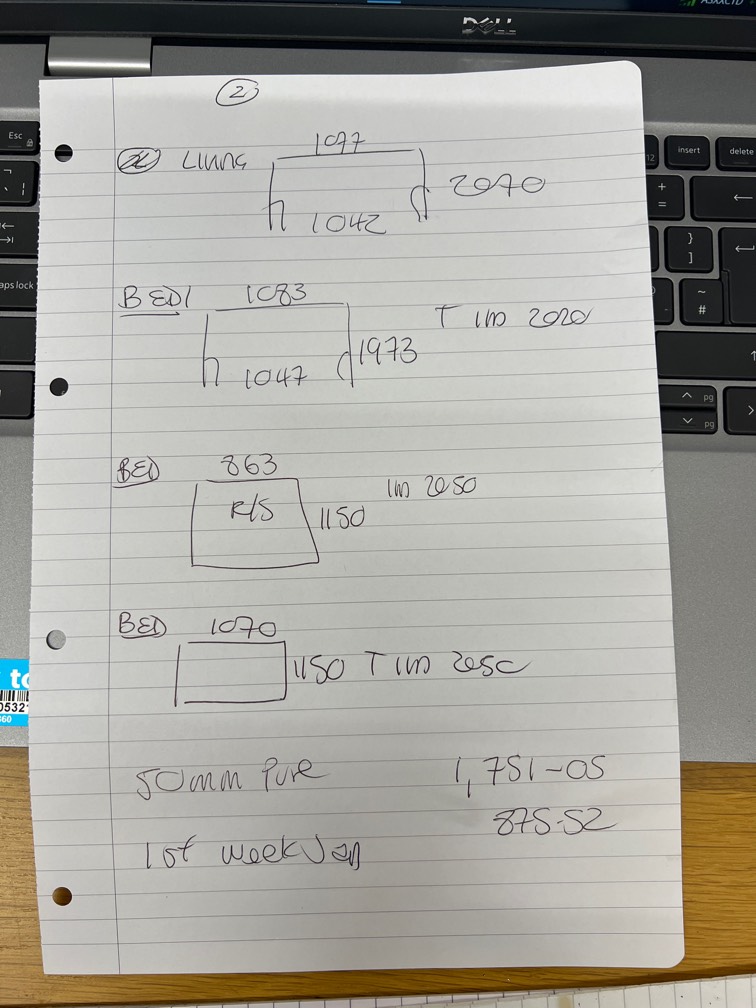 2
LIVING 1077
2070
1042
BED1 1083
T IM 2020
1973
1047
BED 863
IM 2050
R/S
1150
BED 1070
1150 T IM 205C
50mm Pure 1,751-05
875-52
1st week Jan
DELL
Esc
insert
delete
12
+
=
}
]
~
#
aps lock
pg
pg
to
0532
360